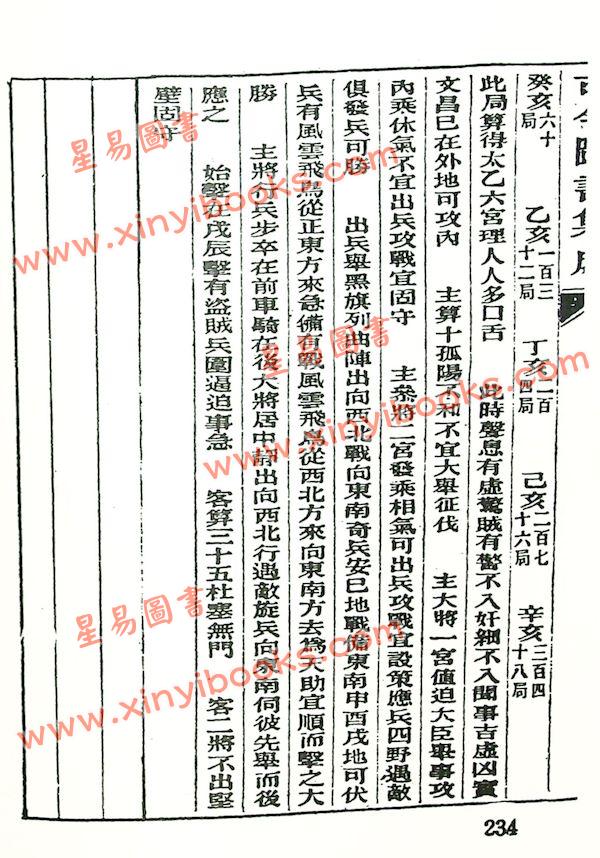 古今圖書集成
癸亥六十局　乙亥一百三十二局　丁亥二百四局　己亥二百七十六局　辛亥三百四十八局
此局算得太乙六宮理人人多口舌　此時聲息有虛驚賊有驚不入奸細不入聞事吉虛凶實
文昌巳在外地可攻內　主算十孤陽不和不宜大舉征伐　主大將一宮值迫大臣舉事攻
內乘休氣不宜出兵攻戰宜固守　主參將二宮發乘相氣可出兵攻戰宜設策應兵四野遇敵
俱發兵可勝　出兵舉黑旗列曲陣出向西北戰向東南奇兵安巳地戰備東南申酉戌地可伏
兵有風雲飛鳥從正東方來急備有戰風雲飛鳥從西北方來向東南方去為天助宜順而擊之大
勝　主將行兵步卒在前車騎在後大將居中靜出向西北行遇敵旋兵向東南伺彼先舉而後
應之　始擊在戌辰擊有盜賊兵圍逼迫事急　客算三十五杜塞無門　客二將不出堅
壁固守
234
星易圖書
www.xinyibooks.com
星易圖書
www.xinyibooks.com
星易圖書
www.xinyibooks.com